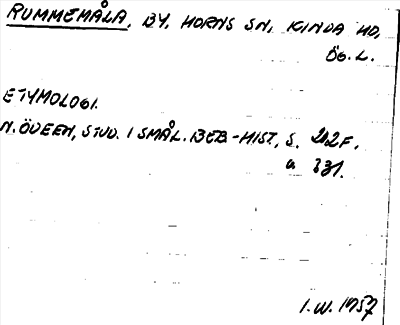 RUMMEMÅLA, BY. HORNS SN, KINDA HD,
ÖG. L.
ETYMOLOGI.
N. ÖDEEN, STUD. I SMÅL. BEB-HIST, S. 212 F.
o. 331.
I. W. 1957